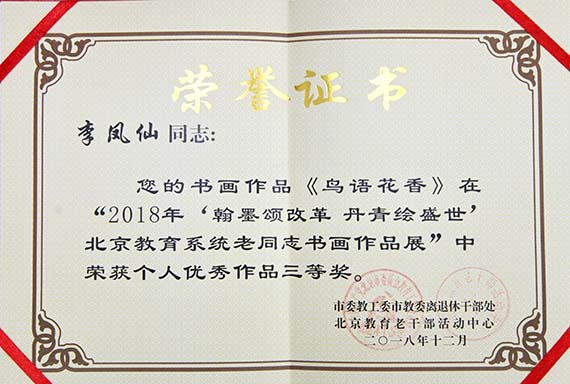 荣誉证书
李凤仙 同志:
您的书画作品《鸟语花香》在
“2018年‘翰墨颂改革 丹青绘盛世’
北京教育系统老同志书画作品展”中
荣获个人优秀作品三等奖。
市委教工委市教委离退休干部处
北京教育老干部活动中心
二〇一八年十二月